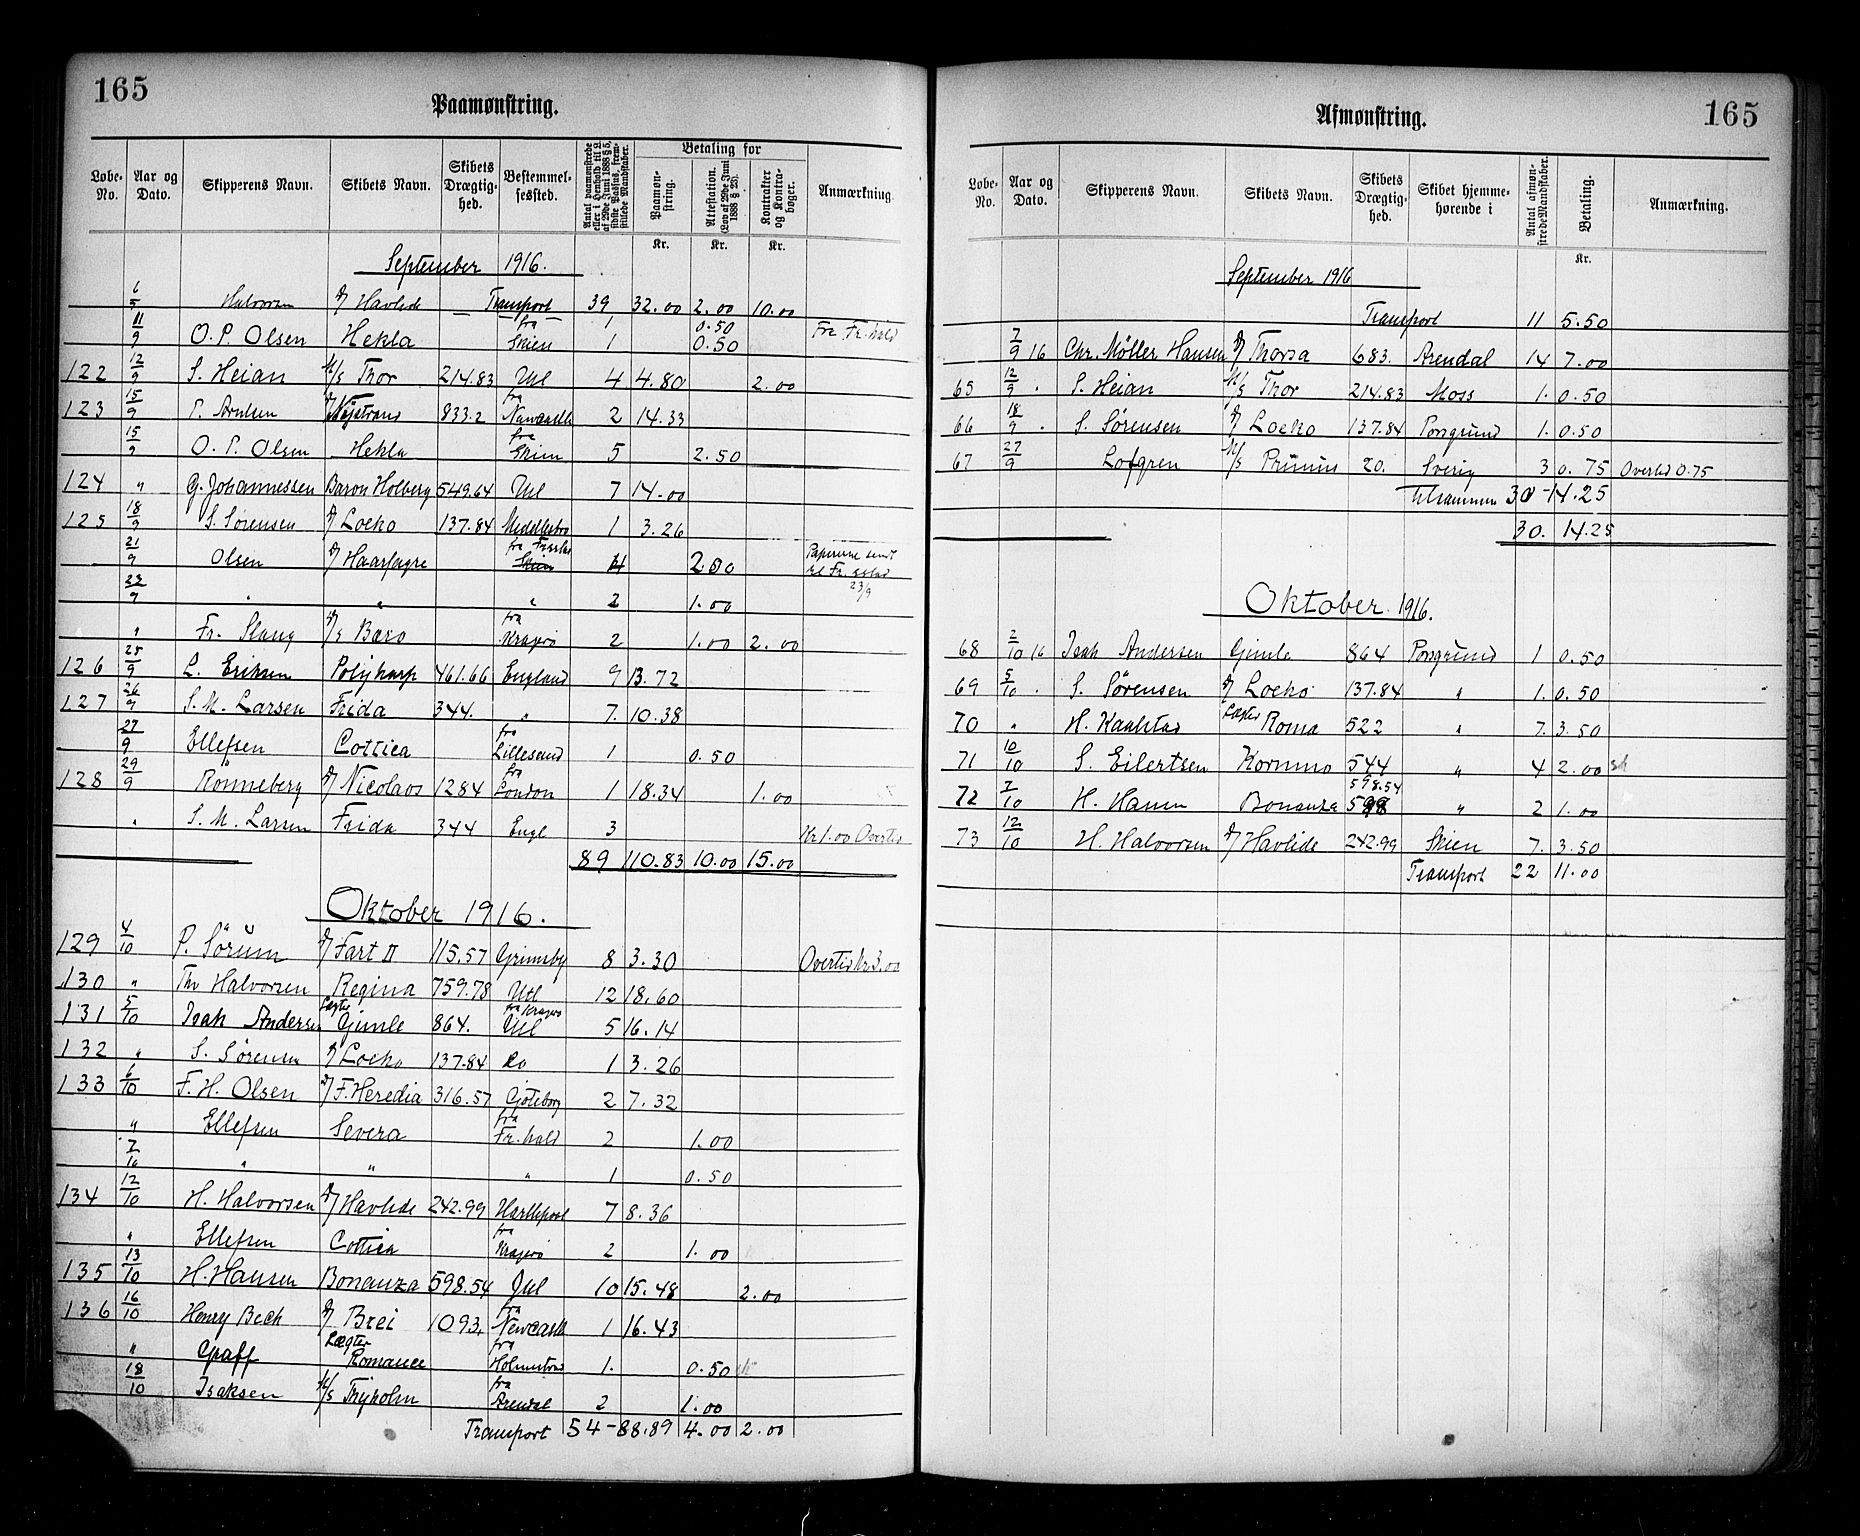 165
Paamønstring.
Løbe-No. | Aar og Dato. | Skipperens Navn. | Skibets Navn. | Skibets Drægtighed. | Bestemmelsessted. | Antal paamønstrede eller i Henhold til L. af 29de Juni 1888 § 5, sidste Passus, fremstillede Mandskaber. | Betaling for | Paamønstring. | Attestation. (Lov af 29de Juni 1888 § 23). | Kontrakter og Kontrabøger. | Anmærkning.
Kr. | Kr. | Kr.
September 1916.
Halvorsen | Havlide | Transport | 39 | 32.00 | 2.00 | 10.00
11/9 | O. P. Olsen | Hekla | fra Skien | 1 1 | 0.50 0.50 | Fra Fr.hald
122 | 12/9 | S. Heian | M/S Thor | 214.83 | Utl | 4 | 4.80 | 2.00
123 | 15/9 | P. Arntsen | 833.2 | fra Newcastle | 2 | 14.33
15/9 | O. P. Olsen | Hekla | fra Skien | 5 | 2.50
124 | " | G. Johannessen | Baron Holberg | 549.64 | Utl | 7 | 14.00
125 | 18/9 | S. Sørensen | Loeko | 137.84 | Middelsbro | 1 | 3.26
21/9 | Olsen | Haarfagre | fra | 4 | 2.00 | Papirerne sendt til 23/9
23/9 | " | " | " | 2 | 1.00
" | Fr. Slang | Baro | fra Kragerø | 2 | 1.00 | 2.00
126 | 25/9 | L. Eriksen | Polykarp | 461.66 | England | 9 | 13.72
127 | 26/9 | S. M. Larsen | Frida | 344. | " | 7. | 10.38
27/9 | Ellefsen | Cottica | fra Lillesand | 1 | 0.50
128 | 29/9 | Rønneberg | Nicolaos | 1284 | fra London | 1 | 18.34 | 1.00
" | S. M. Larsen | Frida | 344 | Engl | 3 | Kr 1.00 Overtid
89 | 110.83 | 10.00 | 15.00
Oktober 1916.
129 | 4/10 | P. Sørum | Fart II | 115.57 | Grimsby | 8 | 3.30 | Overtid Kr. 3.00
130 | " | Th Halvorsen | Regina | 759.78 | Utl | 12 | 18.60
131 | 5/10 | Isak Andersen | Lægter Gimle | 864. | fra Kragerø Utl | 5 | 16.14
132 | " | S. Sørensen | Loeko | 137.84 | do | 1 | 3.26
133 | 6/10 | F. H. Olsen | F. Heredia | 316.57 | Gøteborg | 2 | 7.32
" | Ellefsen | Severa | fra Fr.hald | 2 | 1.00
7/10 | " | " | " | 1 | 0.50
134 | 12/10 | H. Halvorsen | Havlide | 242.99 | Hartlepool | 7 | 8.36
" | Ellefsen | Cottica | fra Kragerø | 2 | 1.00
135 | 13/10 | H. Hansen | Bonanza | 598.54 | Utl | 10 | 15.48 | 2.00
136 | 16/10 | Henry Bech | Brei | 1093. | fra Newcastle | 1 | 16.43
" | Graff | Lægter Romance | fra Holmestrand | 1. | 0.50
18/10 | Isaksen | M/S Tryholm | fra Arendal | 2 | 1.00
Transport | 54 - | 88.89 | 4.00 | 2.00
165
Afmønstring.
Løbe-No. | Aar og Dato. | Skipperens Navn. | Skibets Navn. | Skibets Drægtighed. | Skibet hjemmehørende i | Antal afmønstrede Mandskaber. | Betaling. | Anmærkning.
Kr.
September 1916
Transport | 11 | 5.50
7/9 16 | Chr. Møller Hansen | Thorsa | 683. | Arendal | 14 | 7.00
65 | 12/9 . | S. Heian | M/S Thor | 214.83 | Moss | 1. | 0.50
66 | 18/9 . | S. Sørensen | Loeko | 137.84 | Porsgrund | 1. | 0.50
67 | 27/9 | Lofgren | M/S Primus | 20. | Sverig | 3 | 0.75 | Overtid 0.75
Tilsammen | 30 - | 14.25
30. | 14.25
Oktober 1916.
68 | 2/10 16 | Isak Andersen | Gimle | 864 | Porsgrund | 1 | 0.50
69 | 5/10 . | S. Sørensen | Loeko | 137.84 | " | 1. | 0.50
70 | " | H. Kaalstad | Lægter Roma | 522 | " | 7. | 3.50
71 | 10/10 | S. Eilertsen | Kornmo | 544 | " | 4 | 2.00
72 | 7/10 | H. Hansen | Bonanza | 598.54 598 | " | 2 | 1.00
73 | 12/10 | H. Halvorsen | Havlide | 242.99 | Skien | 7. | 3.50
Transport | 22 | 11.00